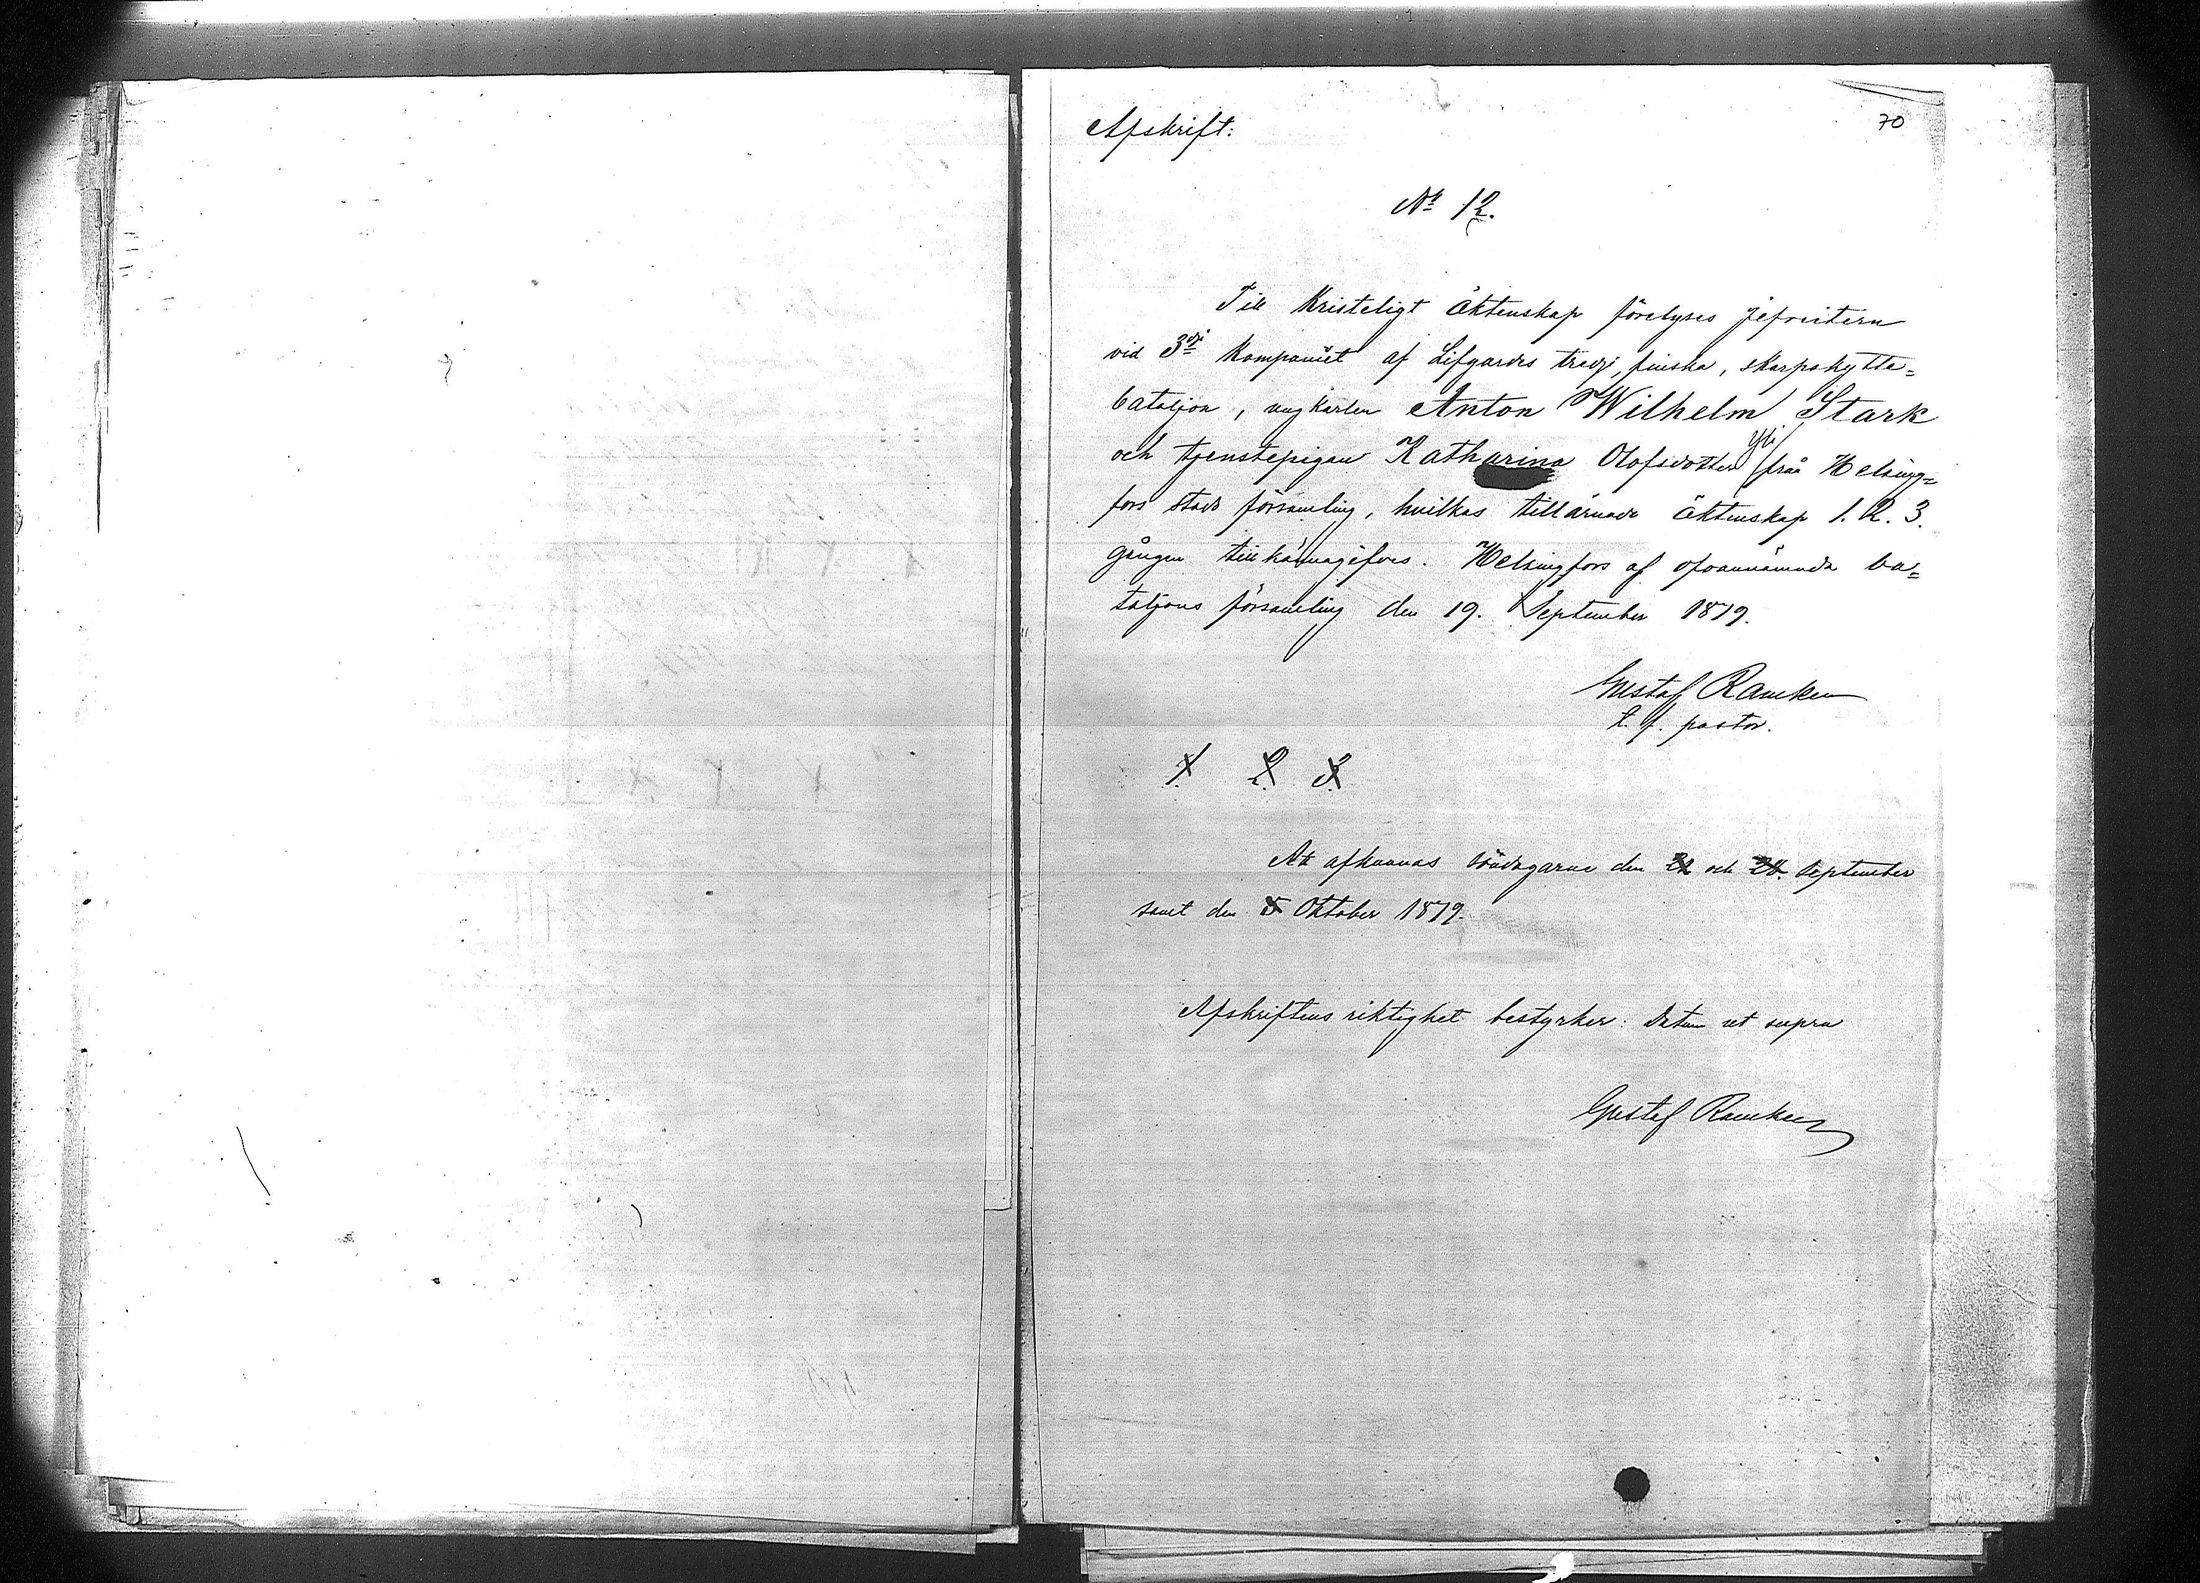 Afskrift:
70
No 12.
Till Kristeligt äktenskap förelyses jefreitern
vid 3dje Kompaniet af Lifgardes tredje, finska, skarpskytte=
bataljon, ungkarlen Anton Wilhelm Stark
och tjenstepigan Katharina Olofsdotter Yli från Helsing=
fors stads församling, hvilkas tillärnade äktenskap 1. 2. 3.
gången tillkännagifves. Helsingfors af ofvannämnda ba=
taljons församling den 19. September 1879.
Gustaf Rancken
t. f. pastor.
1. 2. 3.
At afkunnas söndagarne den 21 och 28. September
samt den 5 Oktober 1879.
Afskriftens riktighet bestyrker: Datum ut supra
Gustaf Rancken